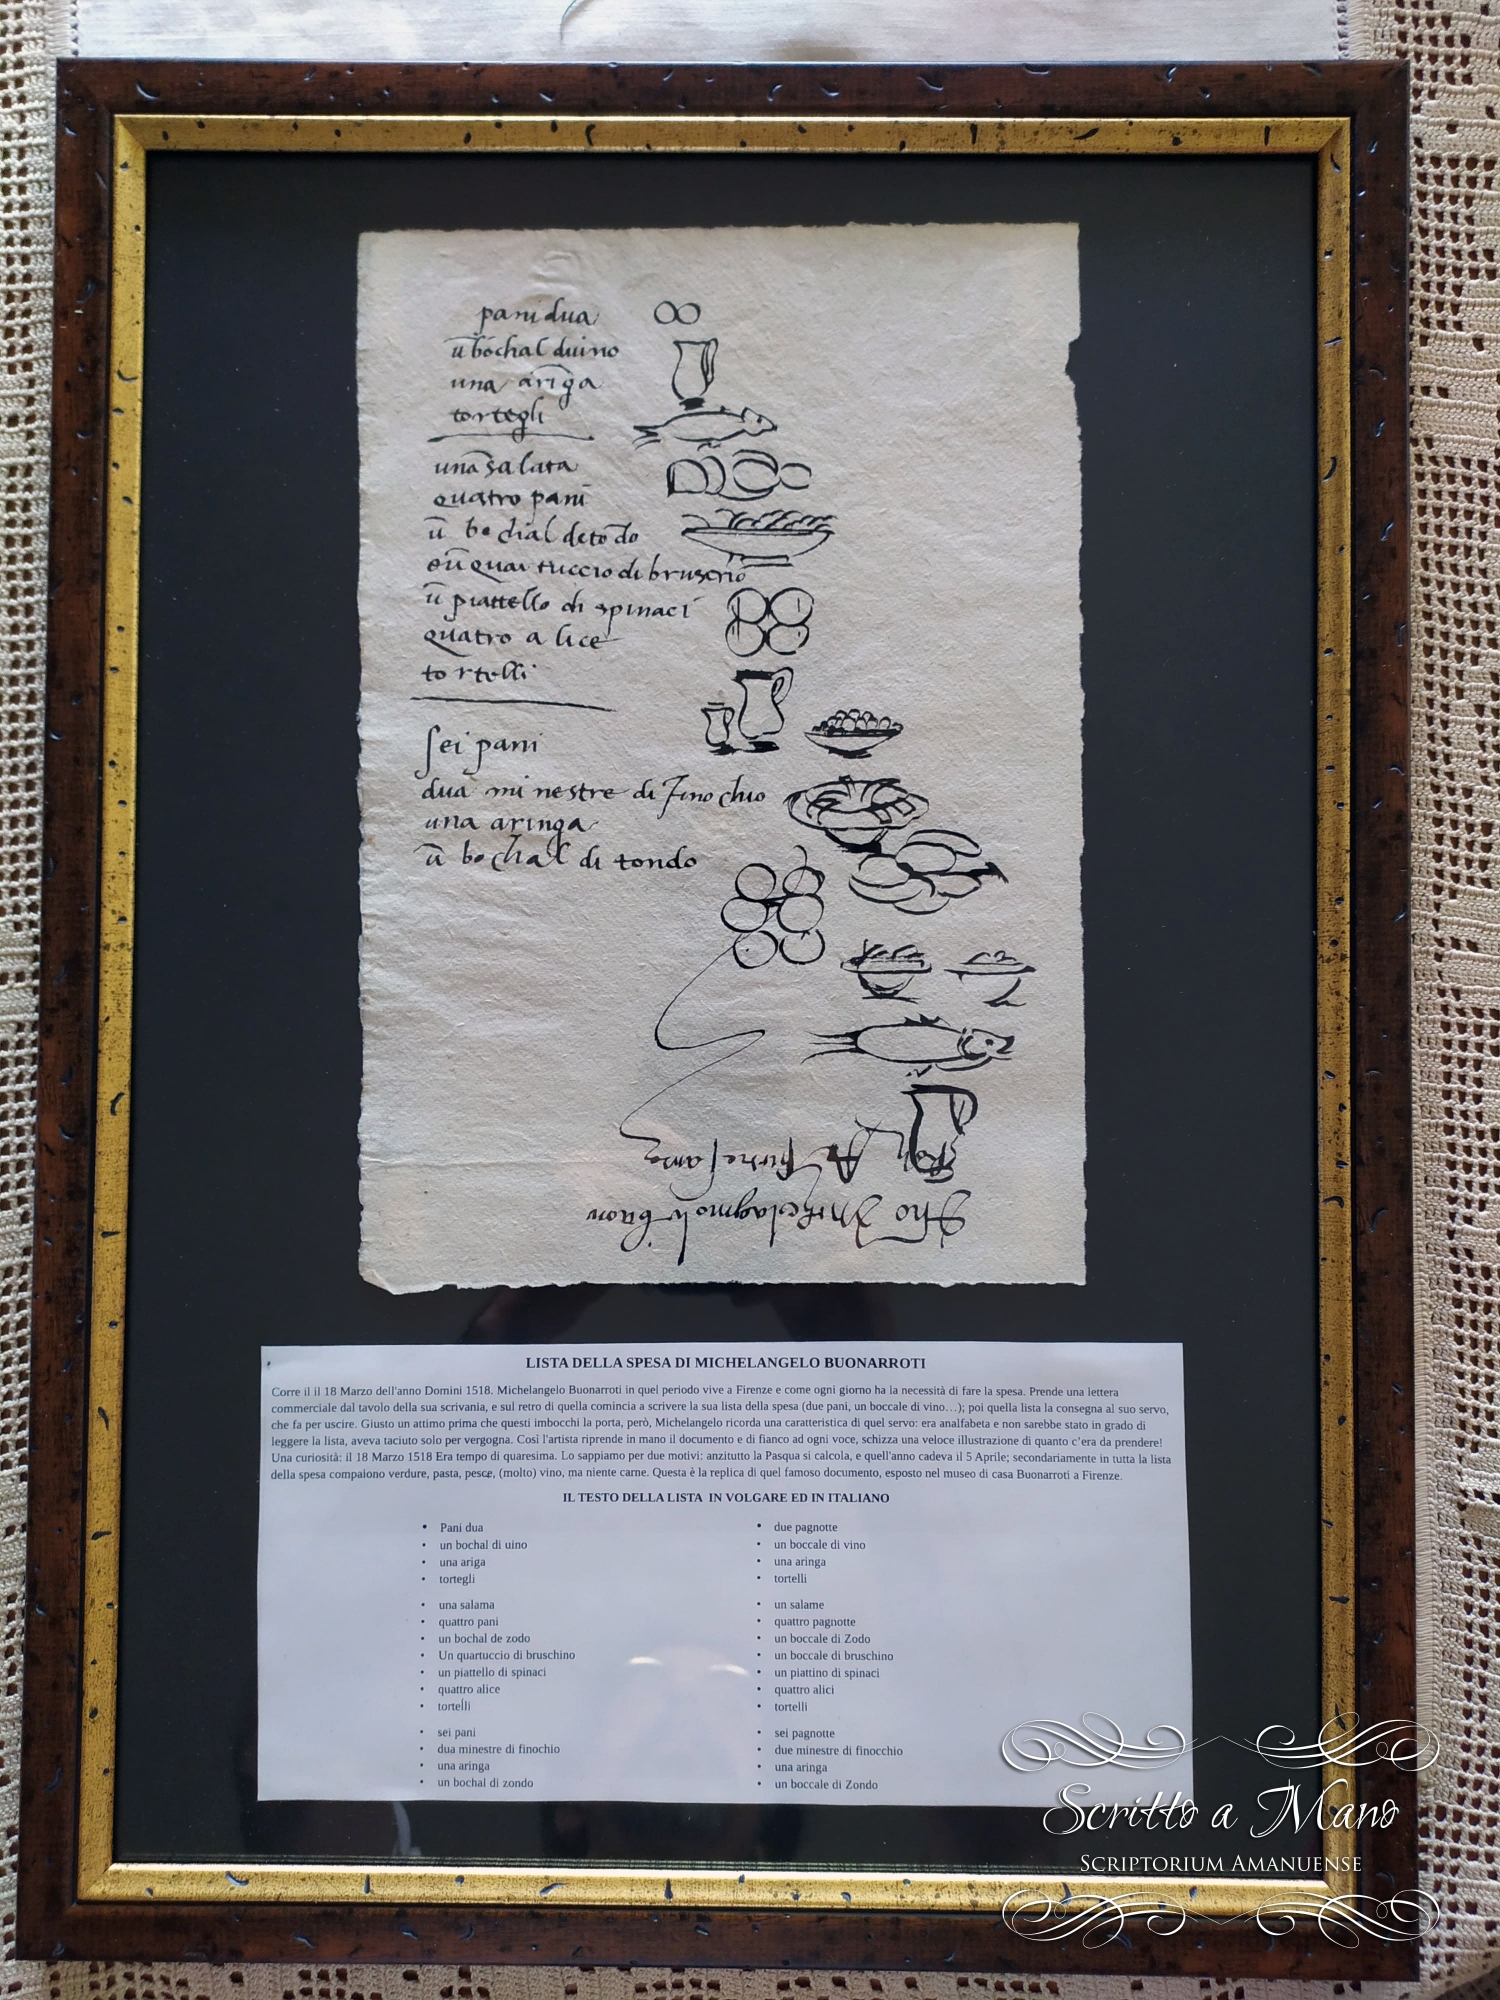 pani dua
ū bochal duino
una arīga
tortegli
una salata
quatro pani
ū bochal detōdo
eū quartuccio di bruscho
ū piattello di spinaci
quatro alice
tortelli
sei pani
dua minestre di finochio
una aringa
ū bochal di tondo
LISTA DELLA SPESA DI MICHELANGELO BUONARROTI
Corre il il 18 Marzo dell'anno Domini 1518. Michelangelo Buonarroti in quel periodo vive a Firenze e come ogni giorno ha la necessità di fare la spesa. Prende una lettera
commerciale dal tavolo della sua scrivania, e sul retro di quella comincia a scrivere la sua lista della spesa (due pani, un boccale di vino…); poi quella lista la consegna al suo servo,
che fa per uscire. Giusto un attimo prima che questi imbocchi la porta, però, Michelangelo ricorda una caratteristica di quel servo: era analfabeta e non sarebbe stato in grado di
leggere la lista, aveva taciuto solo per vergogna. Così l'artista riprende in mano il documento e di fianco ad ogni voce, schizza una veloce illustrazione di quanto c'era da prendere!
Una curiosità: il 18 Marzo 1518 Era tempo di quaresima. Lo sappiamo per due motivi: anzitutto la Pasqua si calcola, e quell'anno cadeva il 5 Aprile; secondariamente in tutta la lista
della spesa compaiono verdure, pasta, pesce, (molto) vino, ma niente carne. Questa è la replica di quel famoso documento, esposto nel museo di casa Buonarroti a Firenze.
IL TESTO DELLA LISTA IN VOLGARE ED IN ITALIANO
• Pani dua
• un bochal di uino
• una ariga
• tortegli
• una salama
• quattro pani
• un bochal de zodo
• Un quartuccio di bruschino
• un piattello di spinaci
• quattro alice
• tortelli
• sei pani
• dua minestre di finochio
• una aringa
• un bochal di zondo
• due pagnotte
• un boccale di vino
• una aringa
• tortelli
• un salame
• quattro pagnotte
• un boccale di Zodo
• un boccale di bruschino
• un piattino di spinaci
• quattro alici
• tortelli
• sei pagnotte
• due minestre di finocchio
• una aringa
• un boccale di Zondo
Scritto a Mano
SCRIPTORIUM AMANUENSE